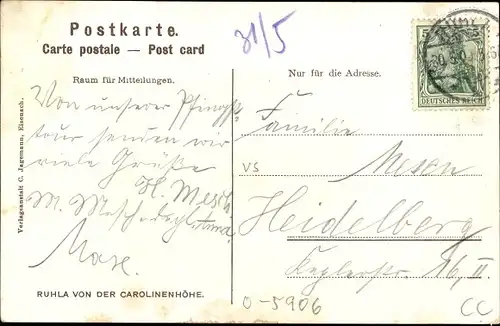 Postkarte.
Carte postale — Post card
31/5
5 5
DEUTSCHES REICH
Raum für Mitteilungen.
Nur für die Adresse.
Von unserer Pfingst-
tour senden wir
viele Grüße
H. Mesch
M.
Max.
Familie
VS
Heidelberg
16, II
Verlagsanstalt C. Jagemann, Eisenach.
RUHLA VON DER CAROLINENHÖHE.
0-5906
CC